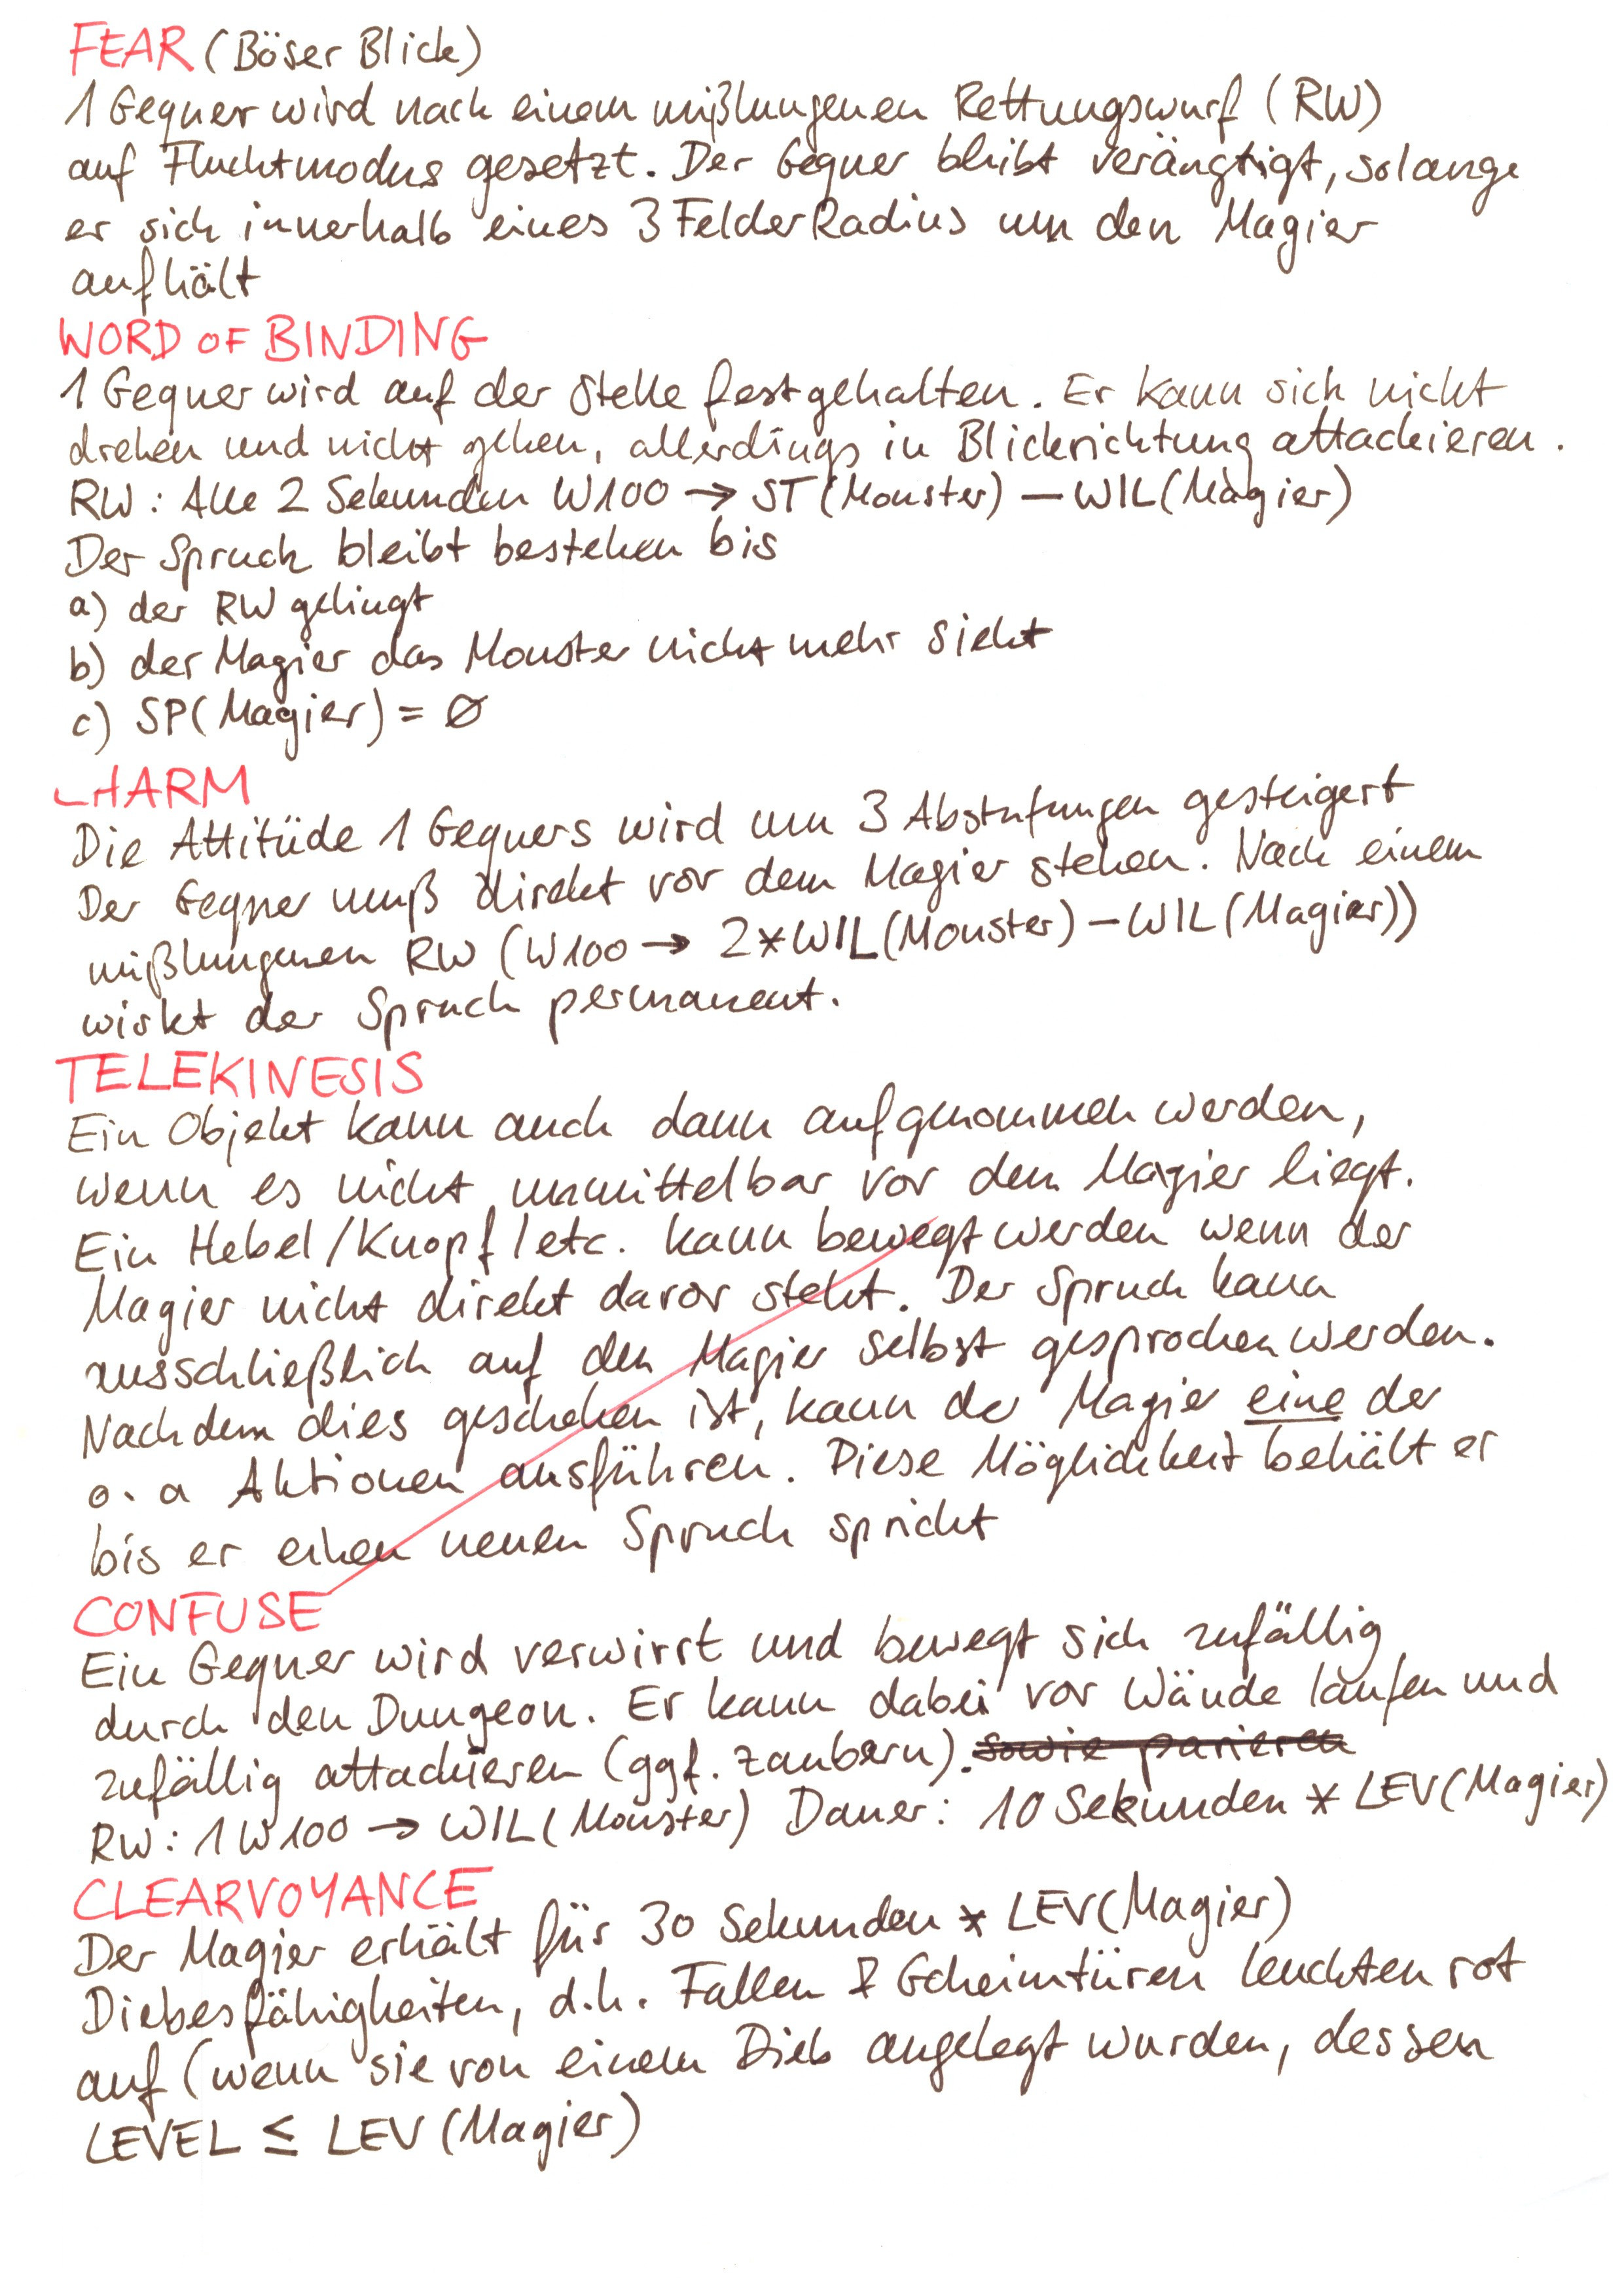 FEAR (Böser Blick)
1 Gegner wird nach einem mißlungenen Rettungswurf (RW)
auf Fluchtmodus gesetzt. Der Gegner bleibt verängtigt, solange
er sich innerhalb eines 3 Felder Radius um den Magier
aufhält
WORD OF BINDING
1 Gegner wird auf der Stelle festgehalten. Er kann sich nicht
drehen und nicht gehen, allerdings in Blickrichtung attackieren.
RW: Alle 2 Sekunden W100 → ST(Monster) – WIL(Magier)
Der Spruch bleibt bestehen bis
a) der RW gelingt
b) der Magier das Monster nicht mehr sieht
c) SP(Magier) = Ø
CHARM
Die Attitüde 1 Gegners wird um 3 Abstufungen gesteigert
Der Gegner muß direkt vor dem Magier stehen. Nach einem
mißlungenen RW (W100 → 2*WIL(Monster) – WIL(Magier))
wirkt der Spruch permanent.
TELEKINESIS
Ein Objekt kann auch dann aufgenommen werden,
wenn es nicht unmittelbar vor dem Magier liegt.
Ein Hebel/Knopf/etc. kann bewegt werden wenn der
Magier nicht direkt davor steht. Der Spruch kann
ausschließlich auf den Magier selbst gesprochen werden.
Nachdem dies geschehen ist, kann der Magier eine der
o.a Aktionen ausführen. Diese Möglichkeit behält er
bis er einen neuen Spruch spricht
CONFUSE
Ein Gegner wird verwirrt und bewegt sich zufällig
durch den Dungeon. Er kann dabei vor Wände laufen und
zufällig attackieren (ggf. zaubern). sowie parieren
RW: 1W100 → WIL(Monster) Dauer: 10 Sekunden * LEV(Magier)
CLEARVOYANCE
Der Magier erhält für 30 Sekunden * LEV(Magier)
Diebesfähigkeiten, d.h. Fallen & Geheimtüren leuchten rot
auf (wenn sie von einem Dieb angelegt wurden, dessen
LEVEL ≤ LEV (Magier)